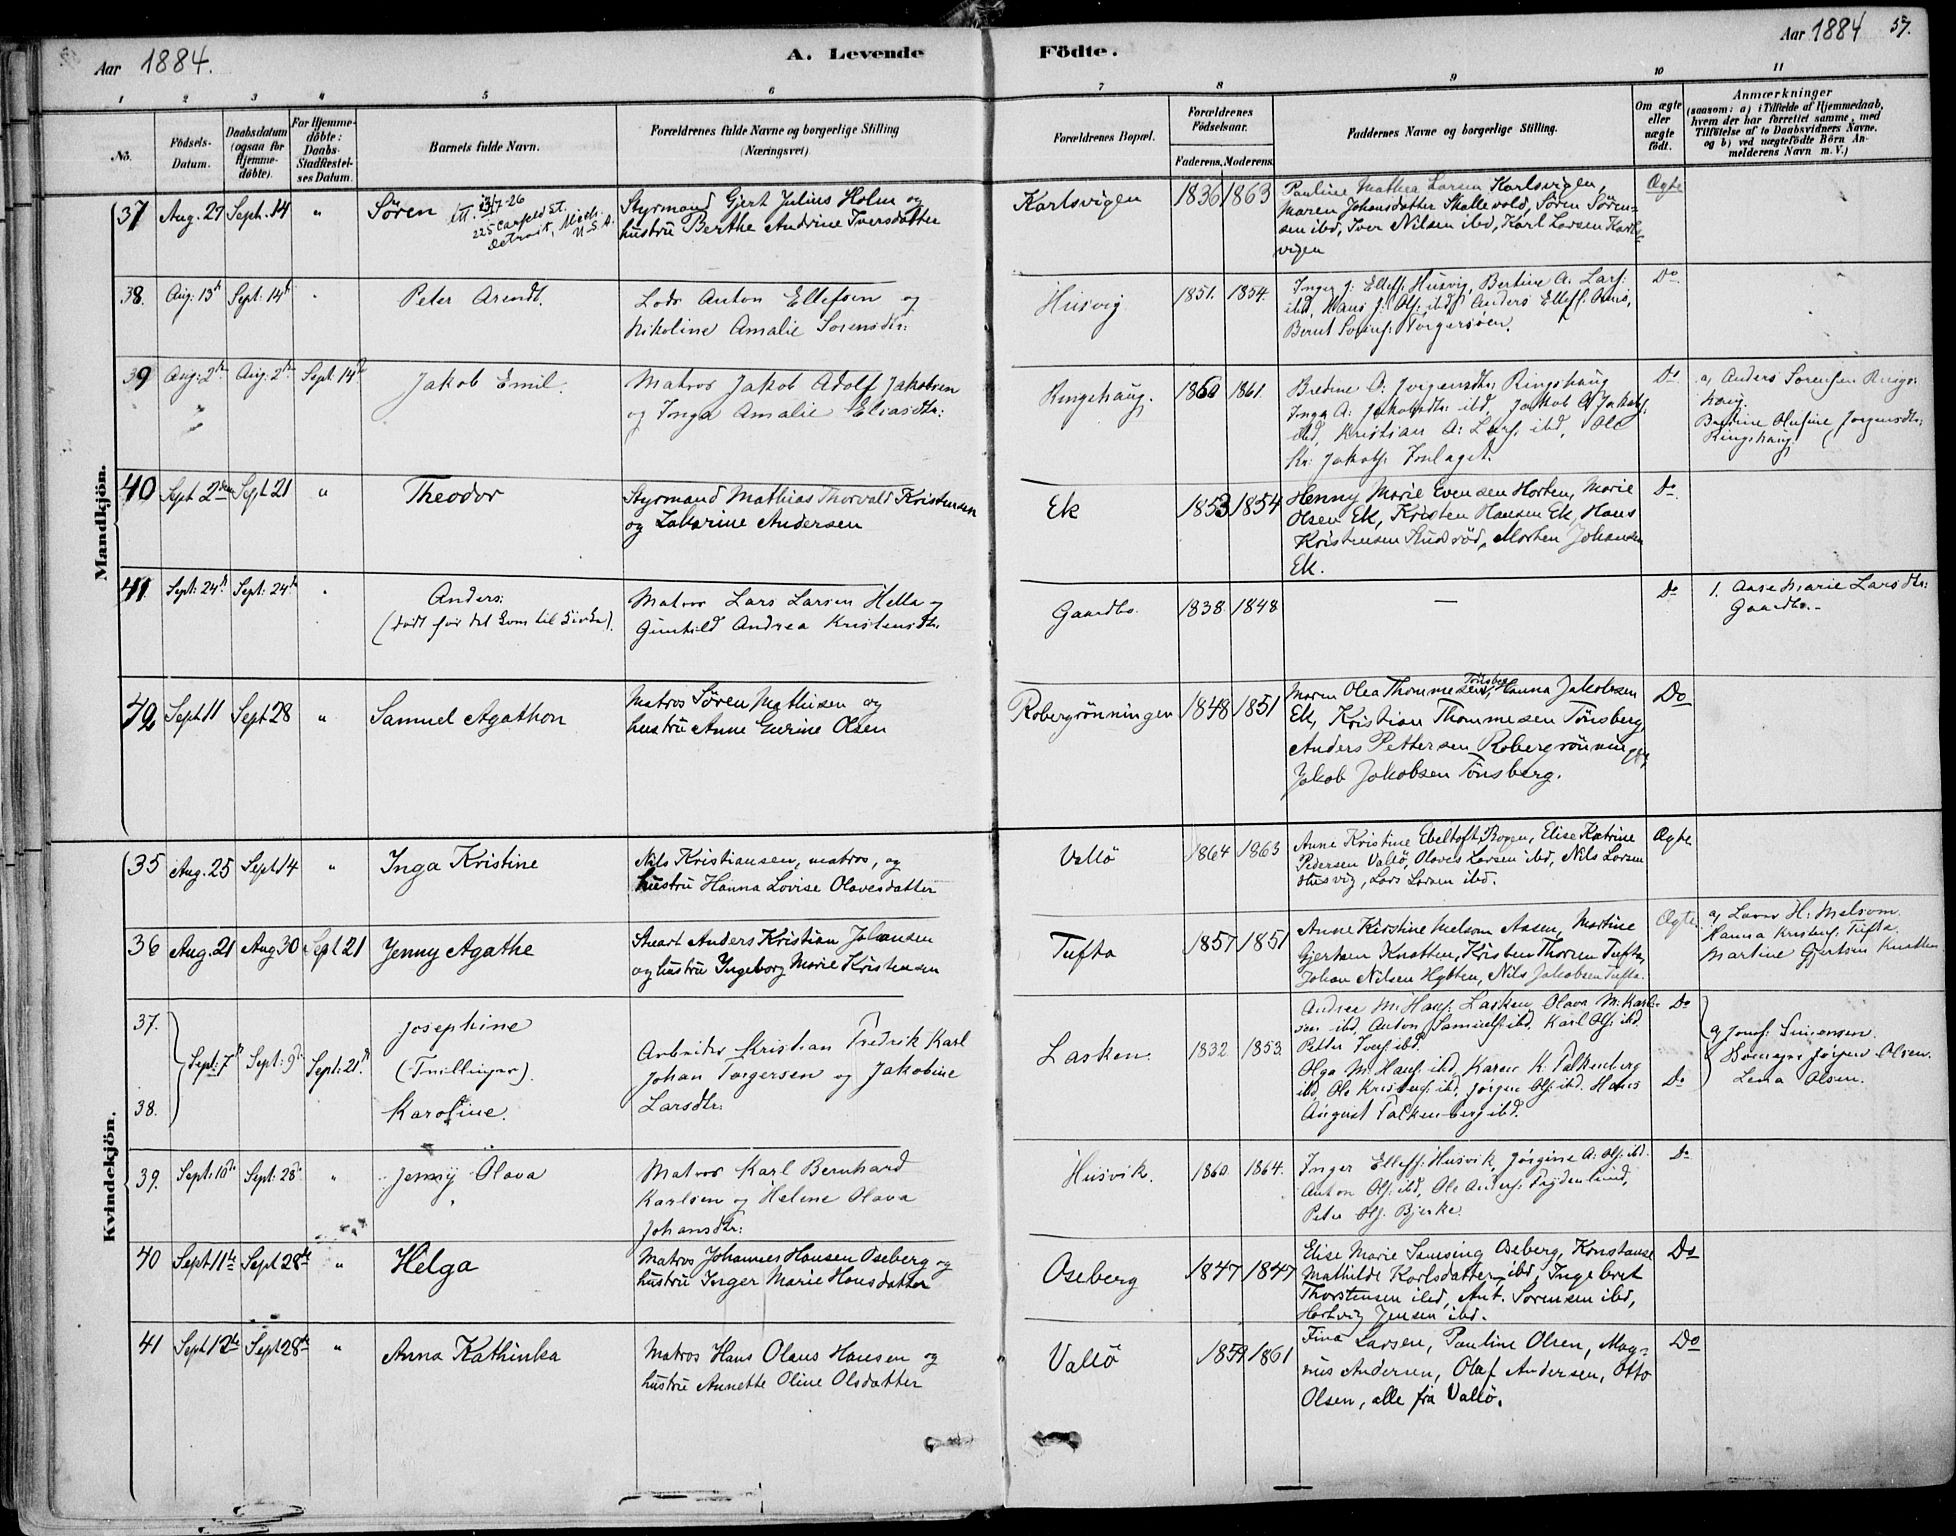 Aar 1884. A. Levende Födte. Aar 1884 57.
1 2 3 4 5 6 7 8 9 10 11
No.
Födsels-Datum.
Daabsdatum (ogsaa for Hjemmedöbte).
For Hjemmedöbte: Daabs-Stadfæstelses Datum.
Barnets fulde Navn.
Forældrenes fulde Navne og borgerlige Stilling (Næringsvei).
Forældrenes Bopæl.
Forældrenes Födselsaar.
Faderens. Moderens.
Faddernes Navne og borgerlige Stilling.
Om ægte eller uægte födt.
Anmærkninger
(saasom: a) i Tilfælde af Hjemmedaab, hvem der har forrettet samme, med Tilföielse af to Daabsvidners Navne, og b) ved uægtefödte Börn Anmelderens Navn m. V.)
Mandkjön.
37 Aug. 27 Sept. 14 " Sören
225 Canfield St.
Detroit, Mich. U.S.A.
Styrmand Gjert Julius Holm og
hustru Berthe Andrine Iversdatter
Karlsvigen 1836 1863
Pauline Mathea Larsen Karlsvigen,
Maren Johansdatter Skallevold, Sören Sören-
sen ibd, Iver Nilsen ibd, Karl Larsen Karls-
vigen
Ægte
38. Aug: 13de Sept: 14de " Peter Arendt.
Lods Anton Ellefsen og
Nikoline Amalie Sorensdtr:
Husvig 1851. 1854.
Inger J: Ellefs: Husvig, Bertine A: Lars:
ibd, Hans J: Ols: ibd, Anders Ellefs:
Bernt Sorens: Torgersöen.
Do
39 Aug: 2de Aug: 2de Sept: 14de Jakob Emil.
Matros Jakob Adolf Jakobsen
og Inga Amalie Eliasdtr:
Ringshaug. 1860 1861.
Bredine O: Jorgensdtr: Ringshaug
Inga A: Jakobsdtr: ibd, Jakob A: Jakobs:
ibd, Kristian A: Lars: ibd, Ole
Kr: Jakobs:
Do
a, Anders Sorensen Rings-
haug.
Bredine Olufine Jorgensdtr:
Ringshaug
40 Sept 2den Sept 21 " Theodor
Styrmand Mathias Thorvald Kristensen
og Zakarine Andersen
Ek 1853 1854
Henny Marie Evensen Horten, Marie
Olsen Ek, Kristen Hansen Ek, Hans
Kristensen Husröd, Morten Johansen
Ek.
Do
41. Sept: 24de Sept: 24de " Anders:
(död för det kom til Kirke).
Matros Lars Larsen Hella og
Gunhild Andrea Kristensdtr:
Gaardbo. 1838. 1848
—
Do
1. Aase Marie Larsdtr:
Gaardbo.-
42 Sept 11 Sept 28 " Samuel Agathon
Matros Sören Mathisen og
hustru Anne Gurine Olsen
Robergrönningen 1848 1851
Maren Olea Thommesen, Tönsberg, Hanna Jakobsen
Ek, Kristian Thommesen Tönsberg,
Anders Pettersen Robergrönningen,
Jakob Jakobsen Tönsberg.
Do
Kvindekjön.
35 Aug. 25 Sept 14 " Inga Kristine
Nils Kristiansen, matros, og
hustru Hanna Lovise Olavesdatter
Vallö 1864 1863
Anne Kristine Ebeltoft Bogen, Elise Katrine
Pedersen Vallö, Olaves Larsen ibd, Nils Larsen
Husvig, Lars Larsen ibd.
Ægte
36 Aug. 21 Aug 30 Sept 21 Jenny Agathe
Stuart Anders Kristian Johansen
og hustru Ingeborg Marie Kristensen
Tufta 1857 1851
Anne Kirstine Melsom Aasen, Martine
Gjertsen Knatten, Kristen Thorsen Tufta,
Johan Nilsen Hytten, Nils Jakobsen Tufta.
Ægte
a, H: Melsom.
Hanna Kristens: Tufta.
Martine Gjertsen Knatten
37. Josephine
Sept: 7de Sept: 9de Sept: 21de (Tvillinger).
38. Karoline.
Arbeider Kristian Fredrik Karl
Johan Torgersen og Jakobine
Larsdtr:
Lasken. 1832. 1853.
Andrea M: Hans: Lasken, Olava M: Karl-
sen ibd, Anton Samuels: ibd, Karl Ols: ibd.
Petter Ivers: ibd
Olga M: Hans: ibd, Karen K: Falkenberg
ibd, Ole Kristens: ibd, Jörgen Ols: ibd. Hans
August Falkenberg ibd.
Do
Do
a, Simonsen.
Jörgen Olsen.
Lena Olsen.
39. Sept: 10de Sept: 28de " Jenny Olava
Matros Karl Bernhard
Karlsen og Helene Olava
Johansdtr:
Husvik. 1860. 1864.
Inger Ellefs: Husvik, Jörgine A: Ols: ibd.
Anton Ols: ibd, Ole Anders: Frydenlund,
Peter Ols: Bjerke.
Do
40 Sept 11te Sept 28de " Helga
Matros Johannes Hansen Oseberg og
hustru Inger Marie Hansdatter
Oseberg 1847 1847
Elise Marie Samsing Oseberg, Konstanse
Mathilde Karlsdatter ibd, Ingebret
Thorstensen ibd, Ant. Sorensen ibd,
Hartvig Jensen ibd.
Do
41 Sept 12te Sept 28de " Anna Kathinka
Matros Hans Olaus Hansen og
hustru Annette Oline Olsdatter
Vallö 1859 1861
Fina Larsen, Pauline Olsen, Mag-
nus Andersen, Olaf Andersen, Otto
Olsen, alle fra Vallö.
Do